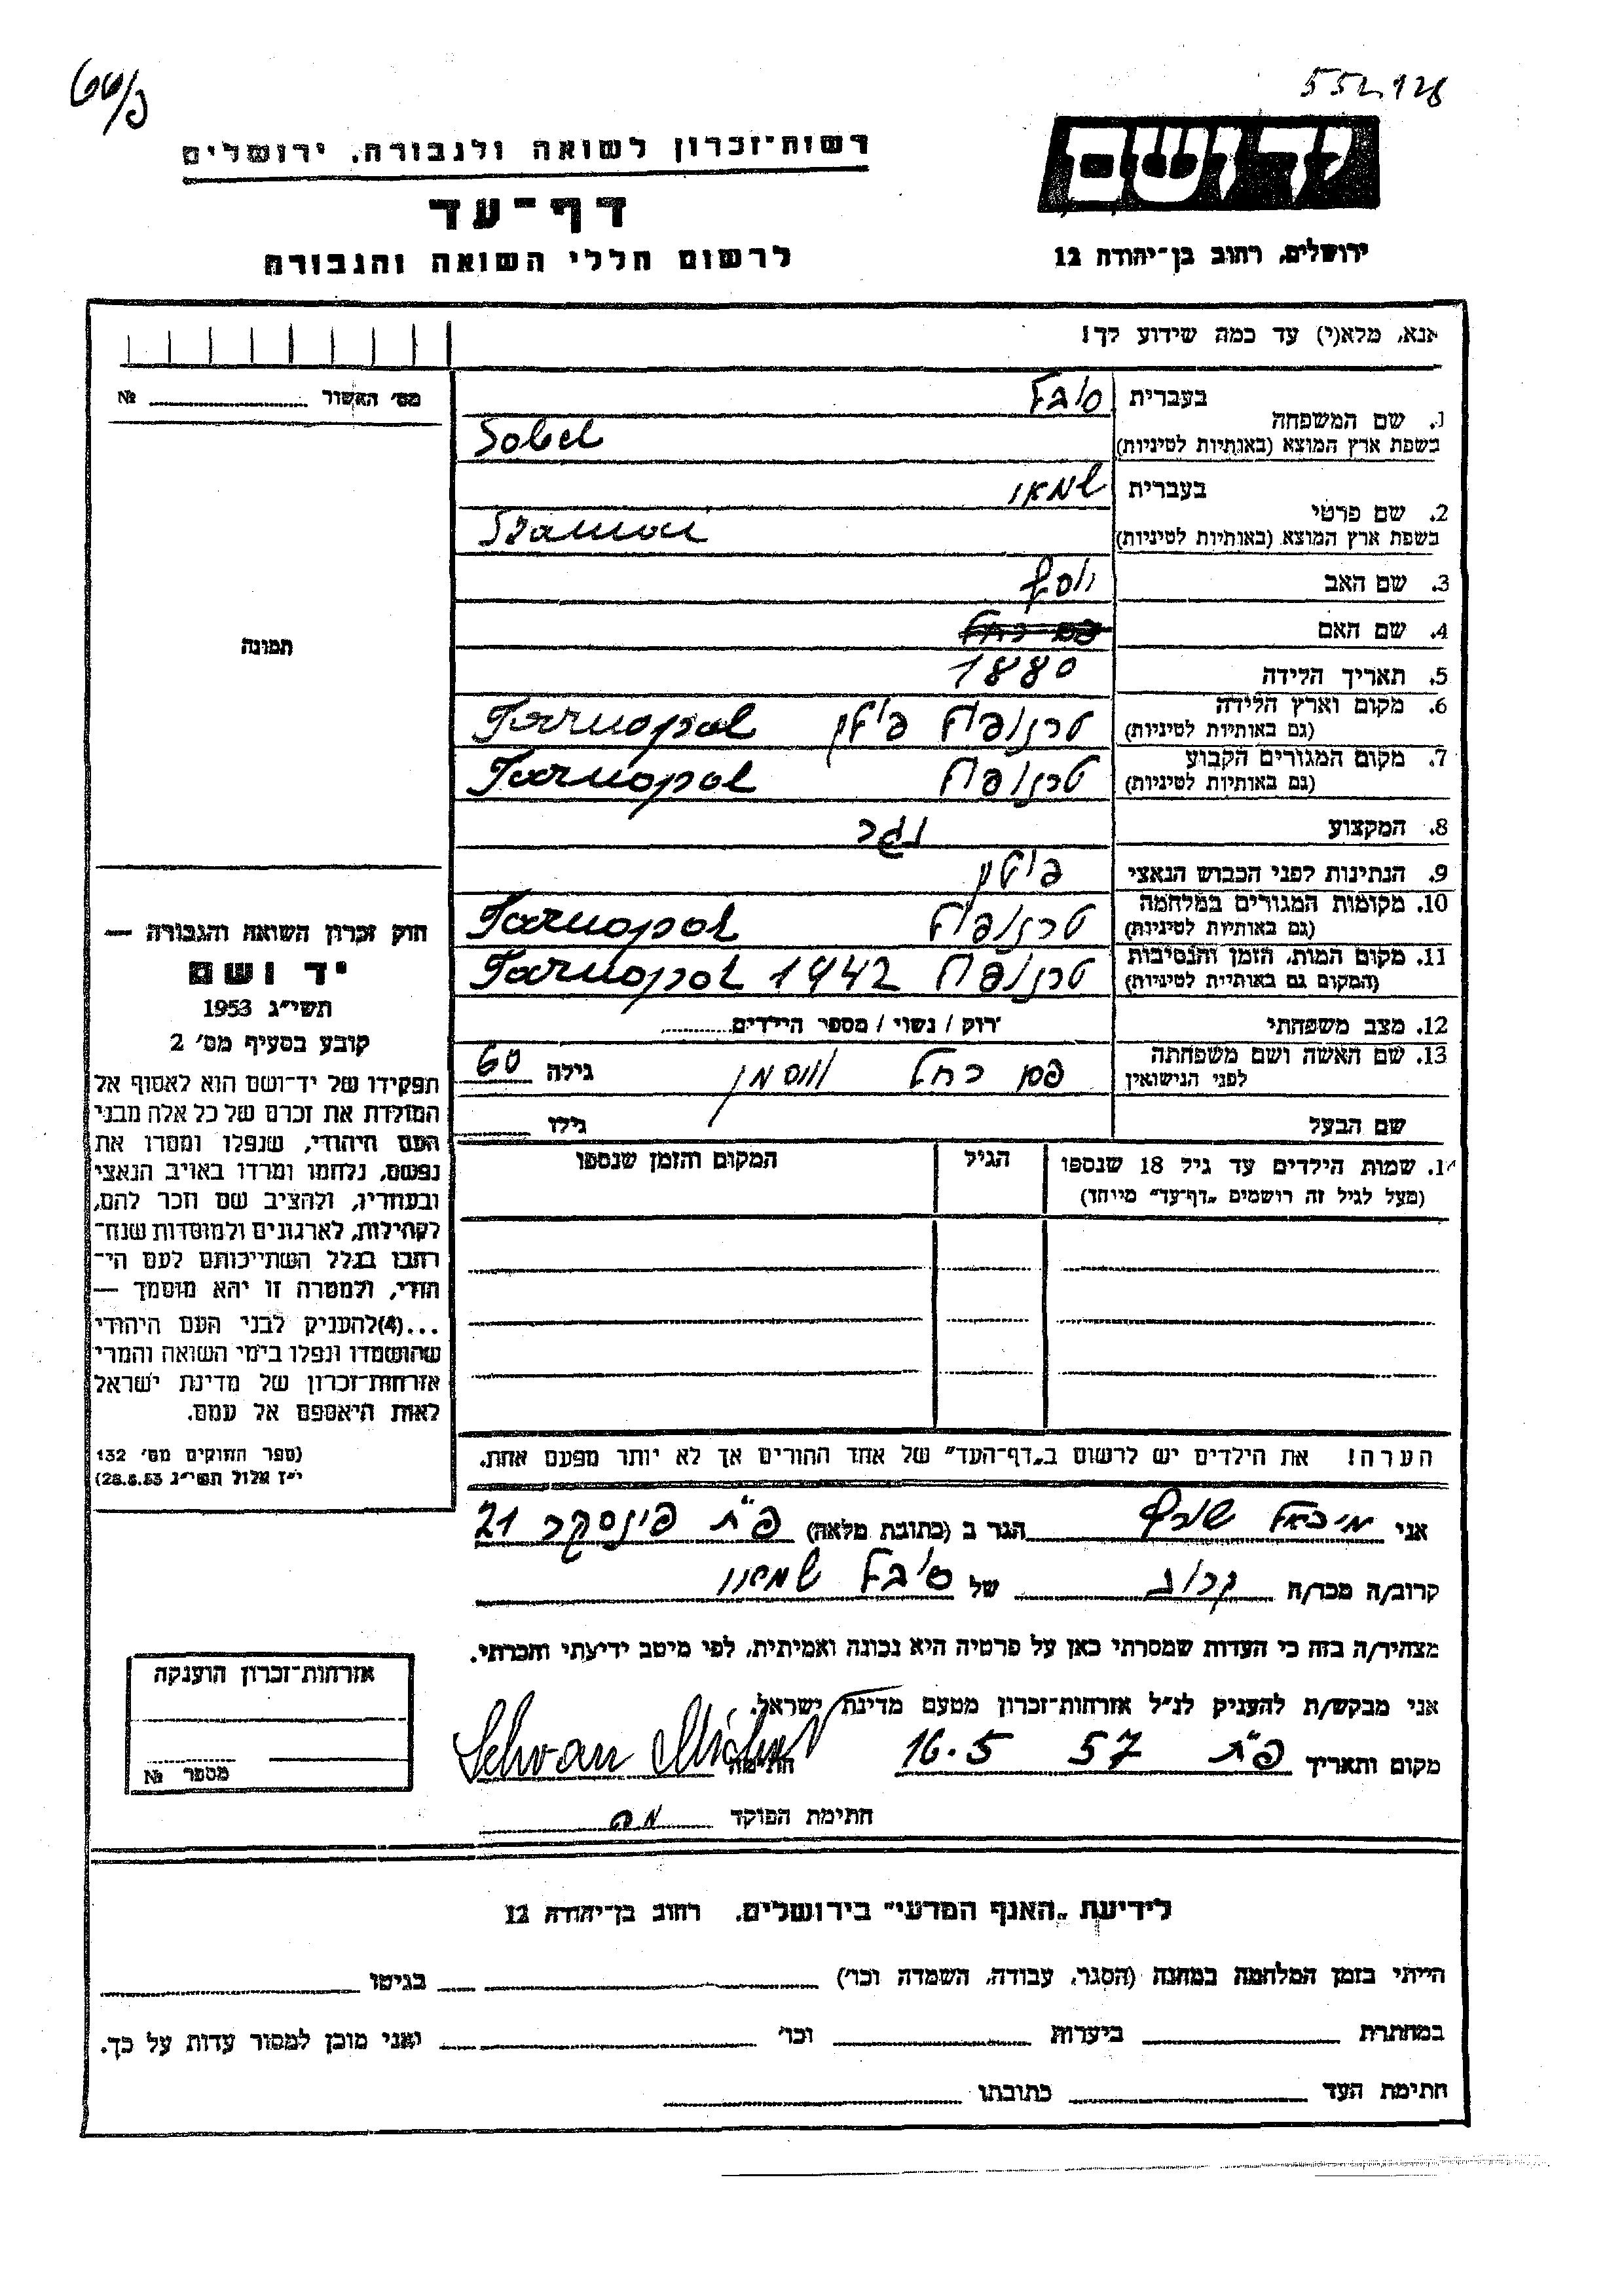 552128
יד ושם
רשות־זכרון לשואה ולגבורה, ירושלים
דף־עד
לרשום חללי השואה והגבורה
ירושלים, רחוב בן־יהודה 12
אנא, מלא(י) עד כמה שידוע לך!
מס' האשור №
1. שם המשפחה
בעברית סובל
בשפת ארץ המוצא (באותיות לטיניות) Sobel
2. שם פרטי
בעברית
בשפת ארץ המוצא (באותיות לטיניות)
3. שם האב יוסף
4. שם האם
5. תאריך הלידה 1880
6. מקום וארץ הלידה
(גם באותיות לטיניות) טרנופול פולין Tarnopol
7. מקום המגורים הקבוע
(גם באותיות לטיניות) טרנופול Tarnopol
8. המקצוע נגר
9. הנתינות לפני הכבוש הנאצי פולין
10. מקומות המגורים במלחמה
(גם באותיות לטיניות) טרנופול Tarnopol
11. מקום המות, הזמן והנסיבות
(המקום גם באותיות לטיניות) טרנופול Tarnopol 1942
12. מצב משפחתי רווק / נשוי / מספר הילדים
13. שם האשה ושם משפחתה
לפני הנישואין רחל גילה 60
שם הבעל גילו
14. שמות הילדים עד גיל 18 שנספו
(מעל לגיל זה רושמים „דף־עד" מיוחד)
הגיל
המקום והזמן שנספו
הערה! את הילדים יש לרשום ב„דף־העד" של אחד ההורים אך לא יותר מפעם אחת.
תמונה
חוק זכרון השואה והגבורה —
יד ושם
תשי"ג 1953
קובע בסעיף מס' 2
תפקידו של יד־ושם הוא לאסוף אל
המולדת את זכרם של כל אלה מבני
העם היהודי, שנפלו ומסרו את
נפשם, נלחמו ומרדו באויב הנאצי
ובעוזריו, ולהציב שם וזכר להם,
לקהילות, לארגונים ולמוסדות שנח־
רבו בגלל השתייכותם לעם הי־
הודי, ולמטרה זו יהא מוסמך —
...(4)להעניק לבני העם היהודי
שהושמדו ונפלו בימי השואה והמרי
אזרחות־זכרון של מדינת ישראל
לאות היאספם אל עמם.
(ספר החוקים מס' 132
י"ז אלול תשי"ג 28.8.53)
אני מיכאל הגר ב (כתובת מלאה) פ"ת פינסקר 21
קרוב/ה מכר/ה קרוב של סובל
מצהיר/ה בזה כי העדות שמסרתי כאן על פרטיה היא נכונה ואמיתית, לפי מיטב ידיעתי והכרתי.
אני מבקש/ת להעניק לנ"ל אזרחות־זכרון מטעם מדינת ישראל.
מקום ותאריך פ"ת 16.5 57 חתימה
חתימת הפוקד
אזרחות־זכרון הוענקה
מספר №
לידיעת „האגף המדעי" בירושלים, רחוב בן־יהודה 12
הייתי בזמן המלחמה במחנה (הסגר, עבודה, השמדה וכו') בגיטו
במחתרת ביערות וכו' ואני מוכן למסור עדות על כך.
חתימת העד כתובתו